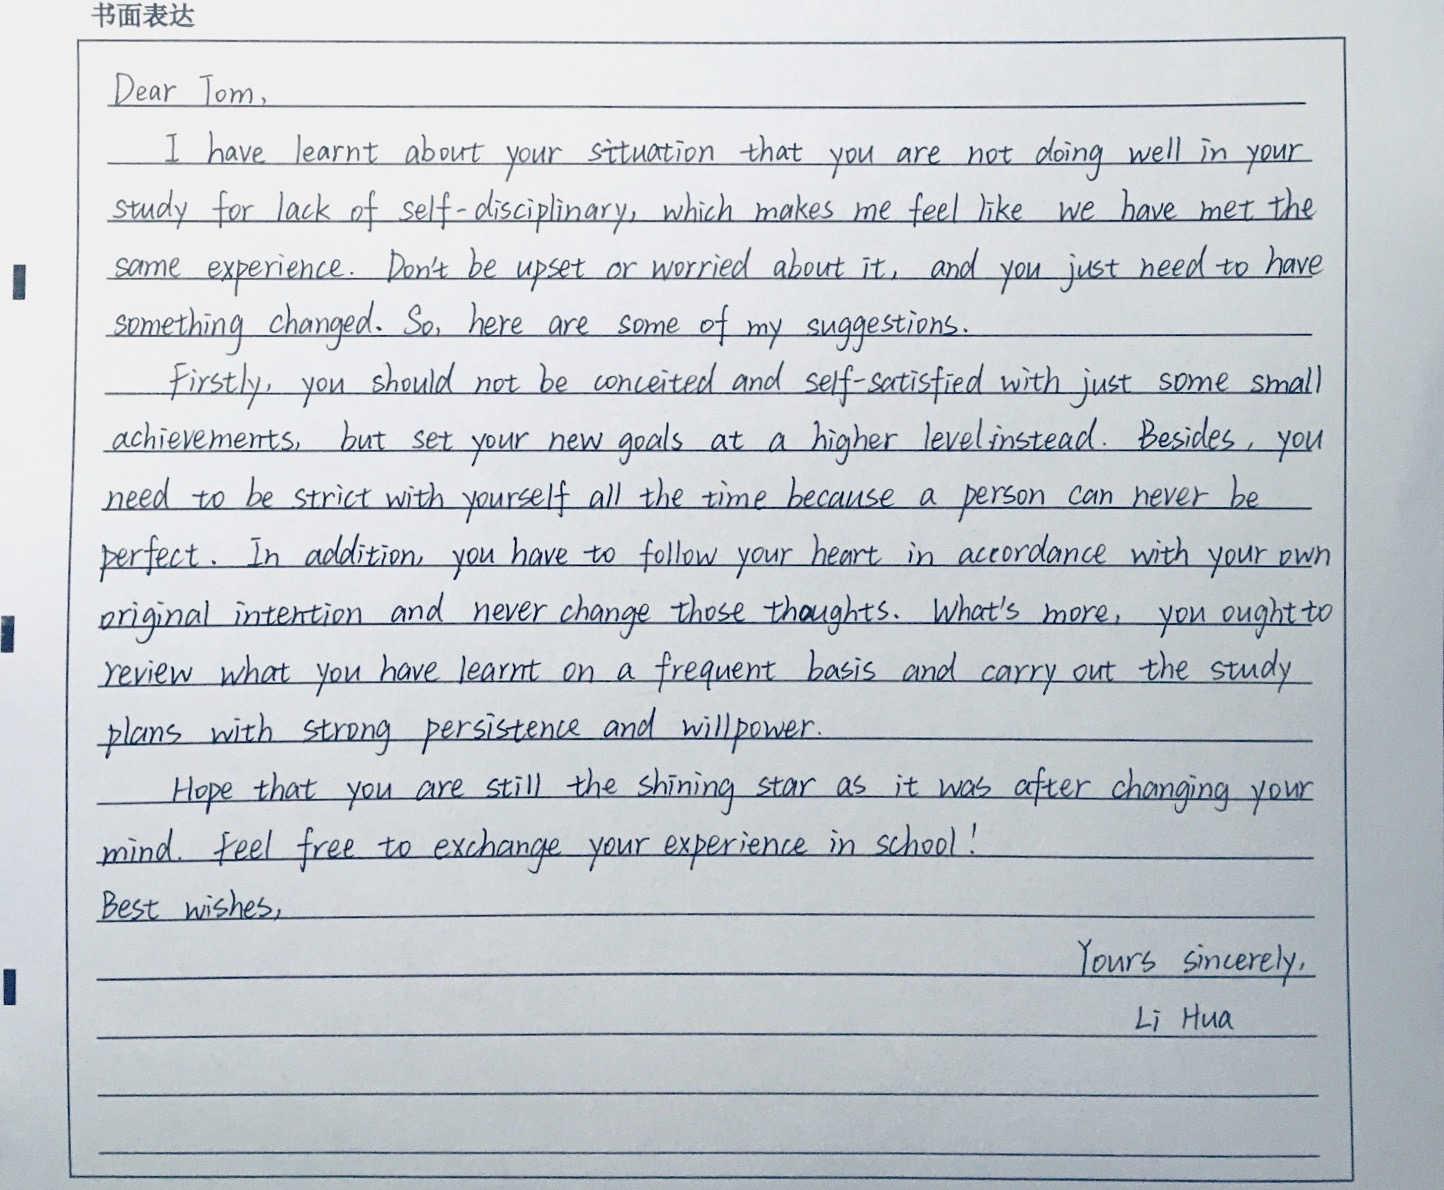 书面表达
Dear Tom,
I have learnt about your situation that you are not doing well in your
study for lack of self-disciplinary, which makes me feel like we have met the
same experience. Don't be upset or worried about it, and you just need to have
something changed. So, here are some of my suggestions.
Firstly, you should not be conceited and self-satisfied with just some small
achievements, but set your new goals at a higher level instead. Besides, you
need to be strict with yourself all the time because a person can never be
perfect. In addition, you have to follow your heart in accordance with your own
original intention and never change those thoughts. What's more, you ought to
review what you have learnt on a frequent basis and carry out the study
plans with strong persistence and willpower.
Hope that you are still the shining star as it was after changing your
mind. Feel free to exchange your experience in school!
Best wishes,
Yours sincerely,
Li Hua